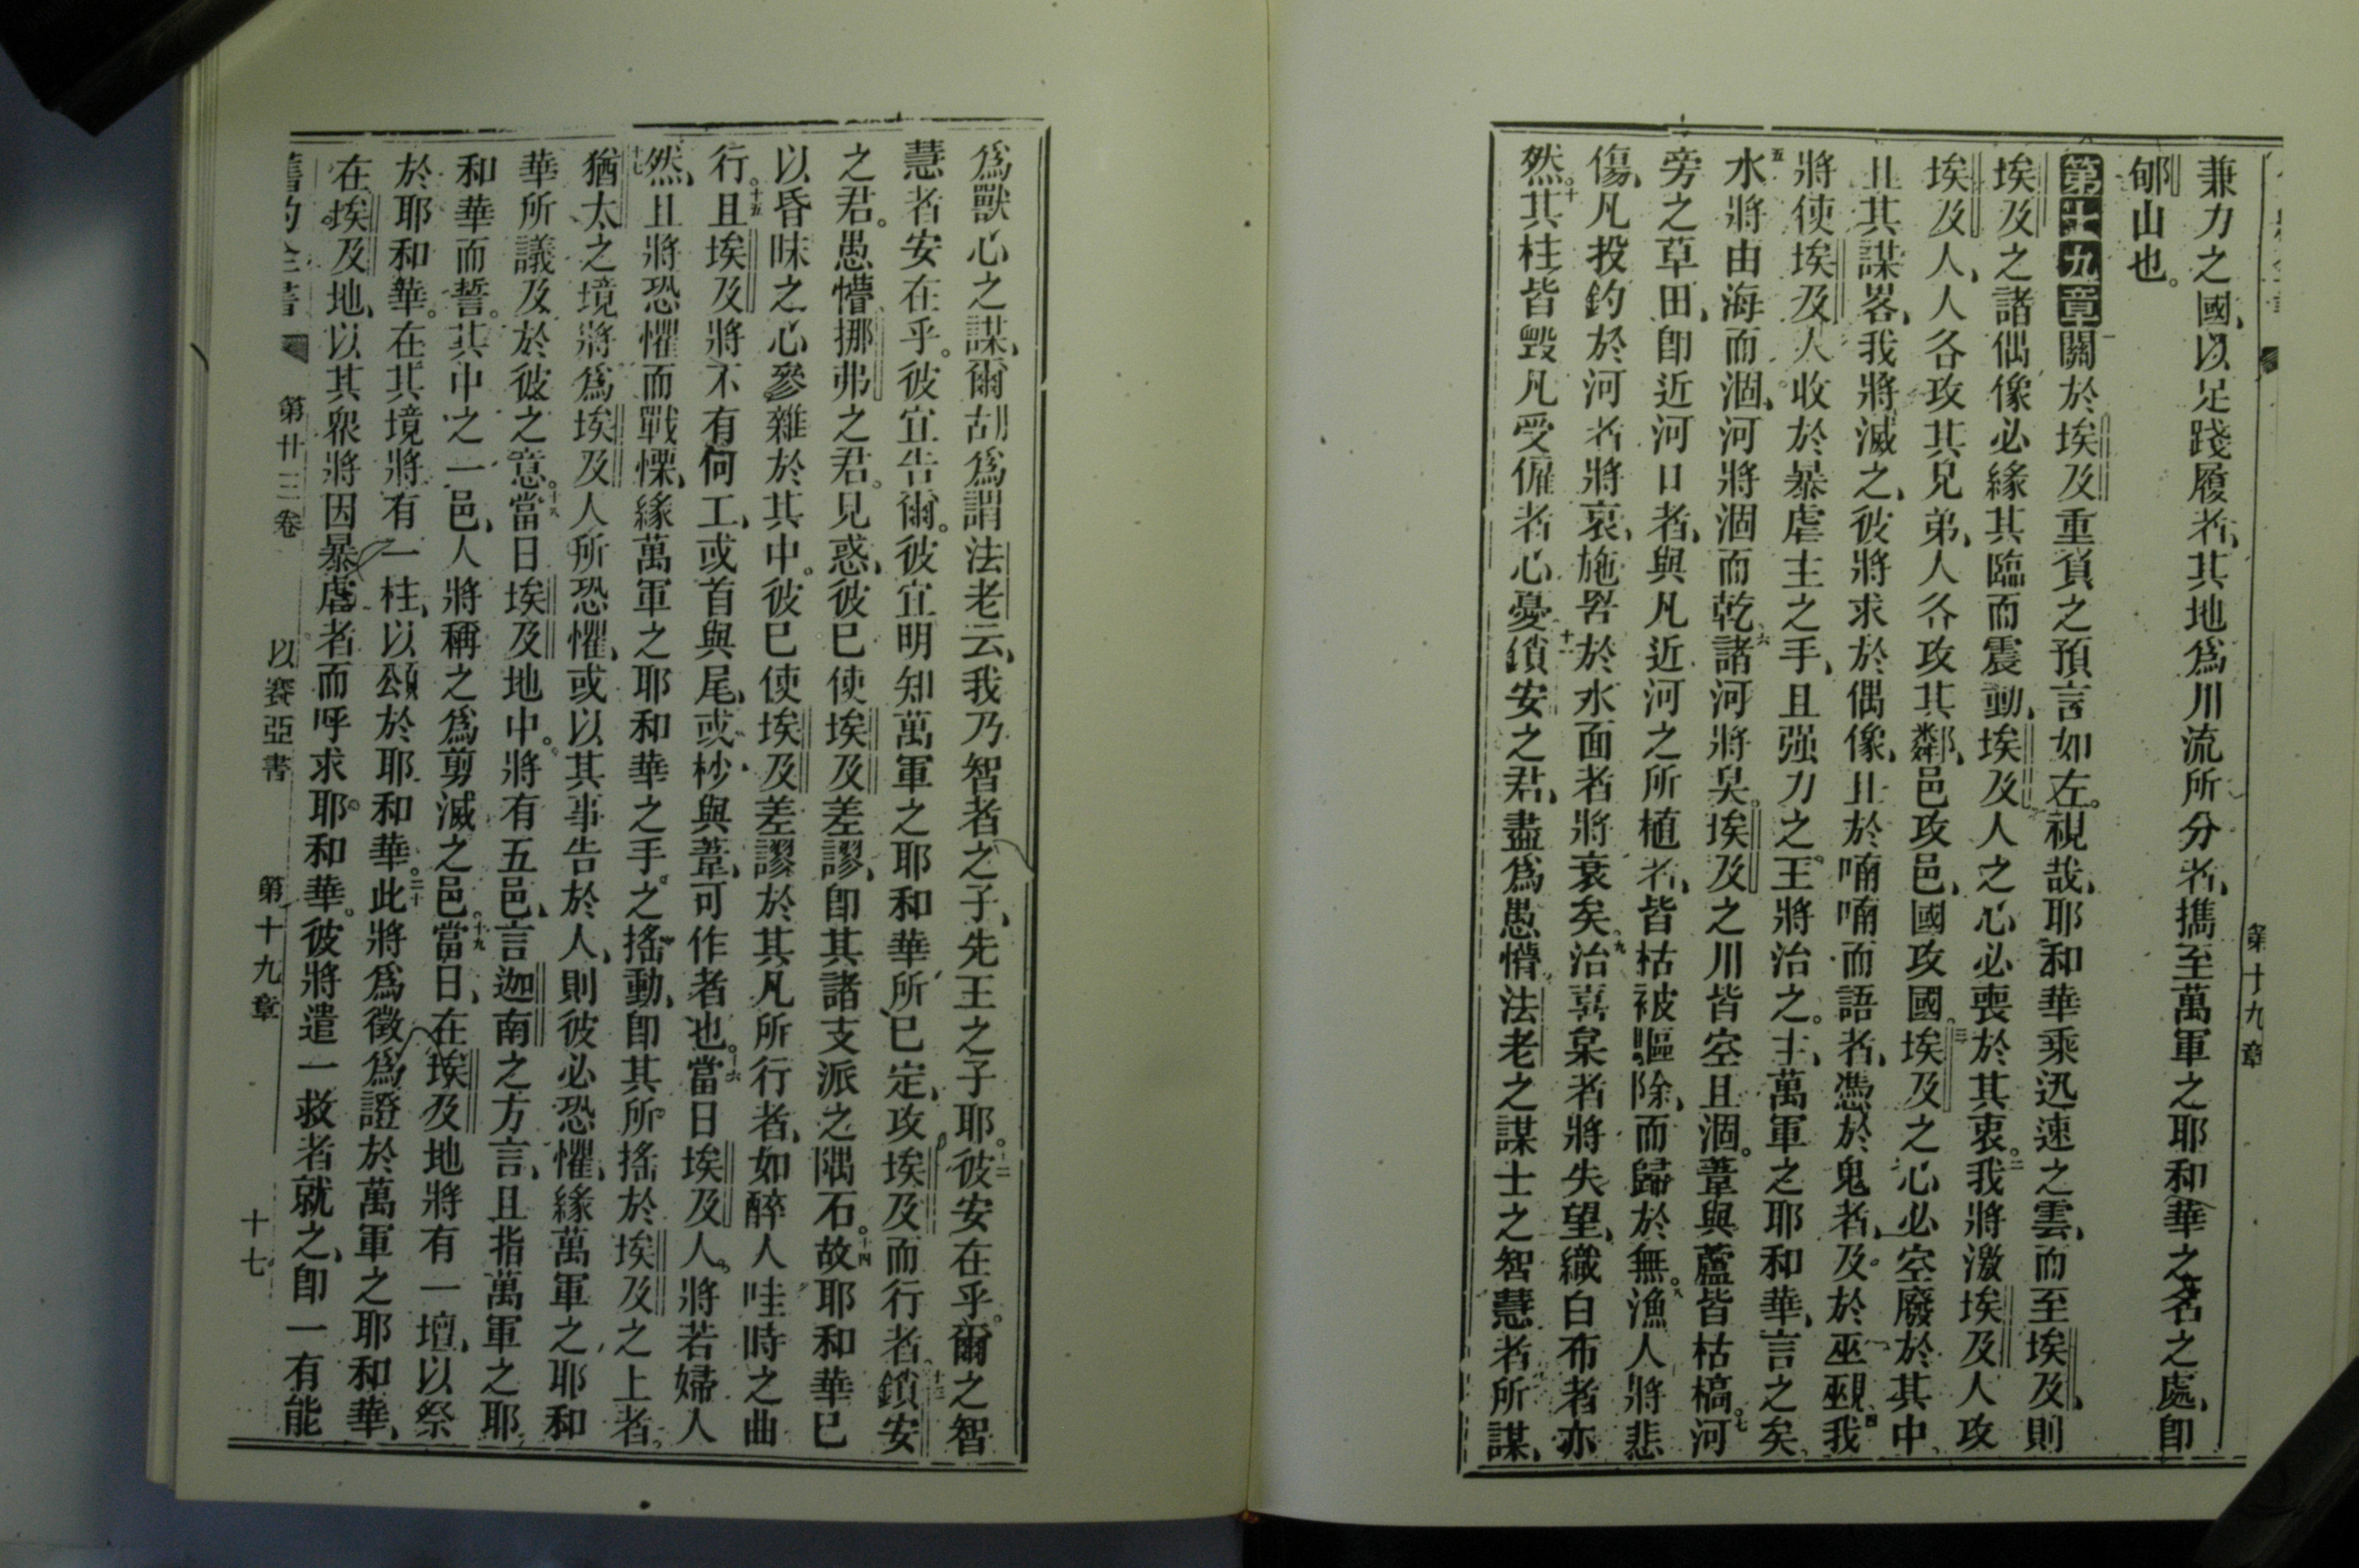 第十九章
兼力之國、以足踐履者、其地爲川流所分者、攜至萬軍之耶和華之名之處、卽
郇山也。
第十九章關於埃及重負之預言如左。視哉、耶和華乘迅速之雲、而至埃及、則
埃及之諸偶像必緣其臨而震動、埃及人之心必喪於其衷。二我將激埃及人攻
埃及人、人各攻其兄弟、人各攻其鄰、邑攻邑、國攻國。三埃及之心必空廢於其中、
且其謀畧、我將滅之、彼將求於偶像、且於喃喃而語者、憑於鬼者、及於巫覡。四我
將使埃及人收於暴虐主之手、且强力之王將治之。主、萬軍之耶和華、言之矣。
五水將由海而涸、河將涸而乾。六諸河將臭。埃及之川皆空且涸。葦與蘆皆枯槁。七河
旁之草田、卽近河口者、與凡近河之所植者、皆枯被驅除、而歸於無。八漁人將悲
傷、凡投釣於河者將哀、施罟於水面者將衰矣。九治枲者將失望、織白布者亦
然。十其柱皆毀、凡受僱者心憂。十一鎖安之君、盡爲愚懵、法老之謀士之智慧者所謀、
爲獸心之謀、爾胡爲謂法老云、我乃智者之子、先王之子耶。十二彼安在乎。爾之智
慧者安在乎。彼宜告爾。彼宜明知萬軍之耶和華所已定、攻埃及而行者。十三鎖安
之君。愚懵、挪弗之君。見惑、彼已使埃及差謬、卽其諸支派之隅石。十四故耶和華已
以昏昧之心參雜於其中。彼已使埃及差謬於其凡所行者、如醉人哇時之曲
行。十五且埃及將不有何工、或首與尾、或杪與葦、可作者也。十六當日埃及人。將若婦人
然、且將恐懼而戰慄、緣萬軍之耶和華之手。之搖動、卽其所搖於埃及之上者。
十七猶太之境將爲埃及人所恐懼、或以其事告於人、則彼必恐懼、緣萬軍之耶和
華所議及於彼之意。十八當日埃及地中。將有五邑、言迦南之方言、且指萬軍之耶
和華而誓。其中之一邑、人將稱之爲剪滅之邑。十九當日、在埃及地將有一壇、以祭
於耶和華。在其境將有一柱、以頌於耶和華。二十此將爲徵爲證於萬軍之耶和華、
在埃及地、以其衆將因暴虐者而呼求耶和華。彼將遣一救者就之、卽一有能
舊約全書 第廿三卷 以賽亞書 第十九章 十七